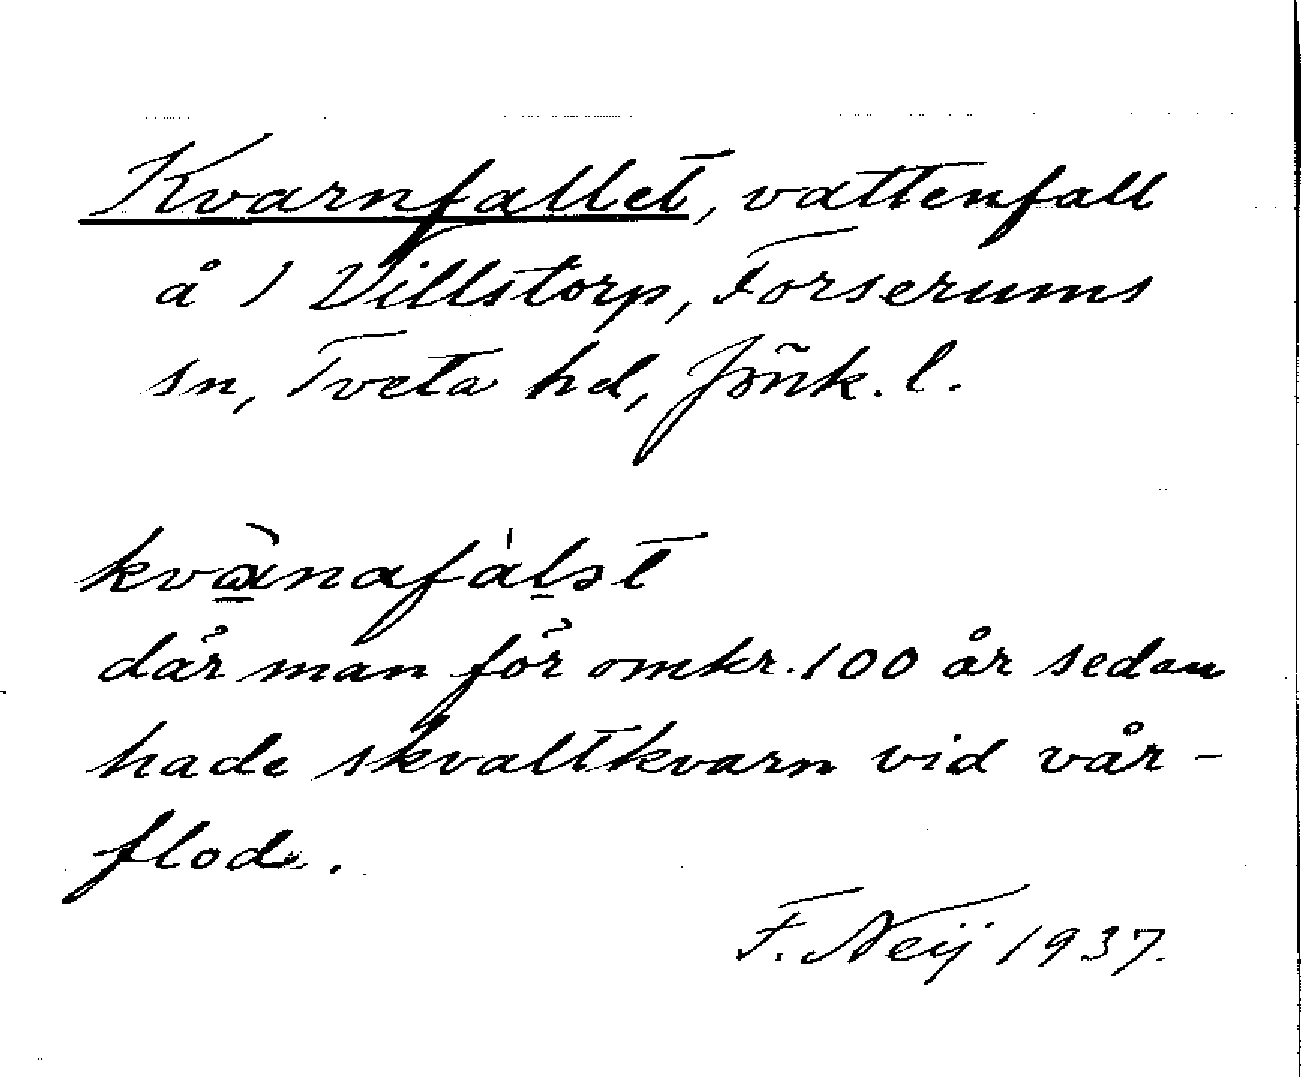 Kvarnfallet, vattenfall
å 1 Villstorp, Forserums
sn, Tveta hd, Jönk. l.
kvànafálət
där man för omkr. 100 år sedan
hade skvaltkvarn vid vår-
flod.
F. Neij 1937.